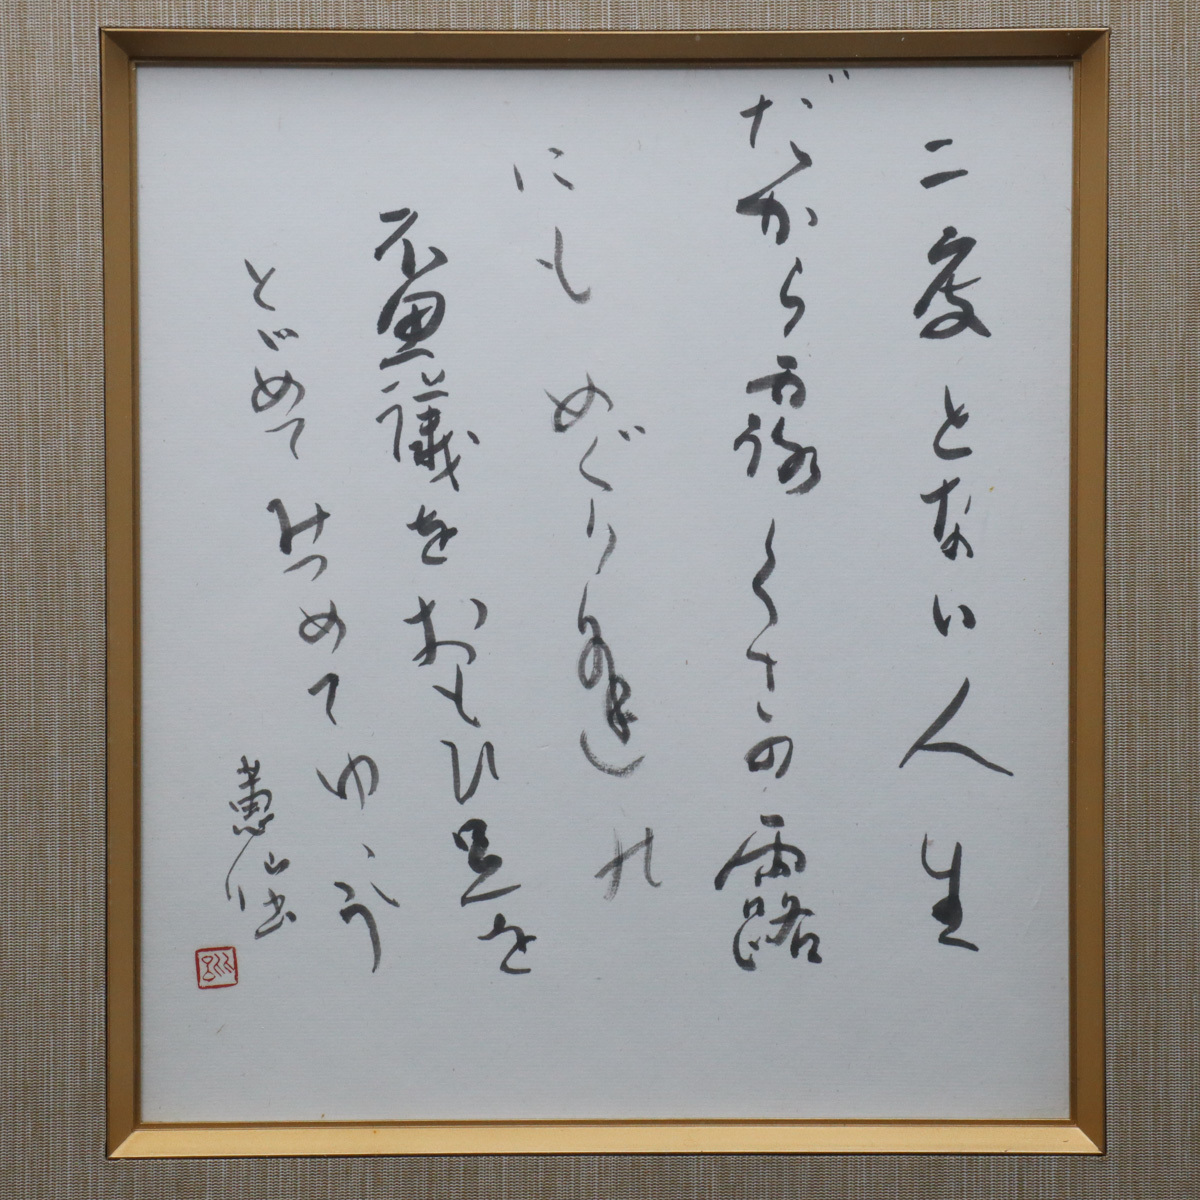 二度とない人生
だから露くさの露
にもめぐり逢の
不思議をおもひ足を
とゞめてみつめてゆこう